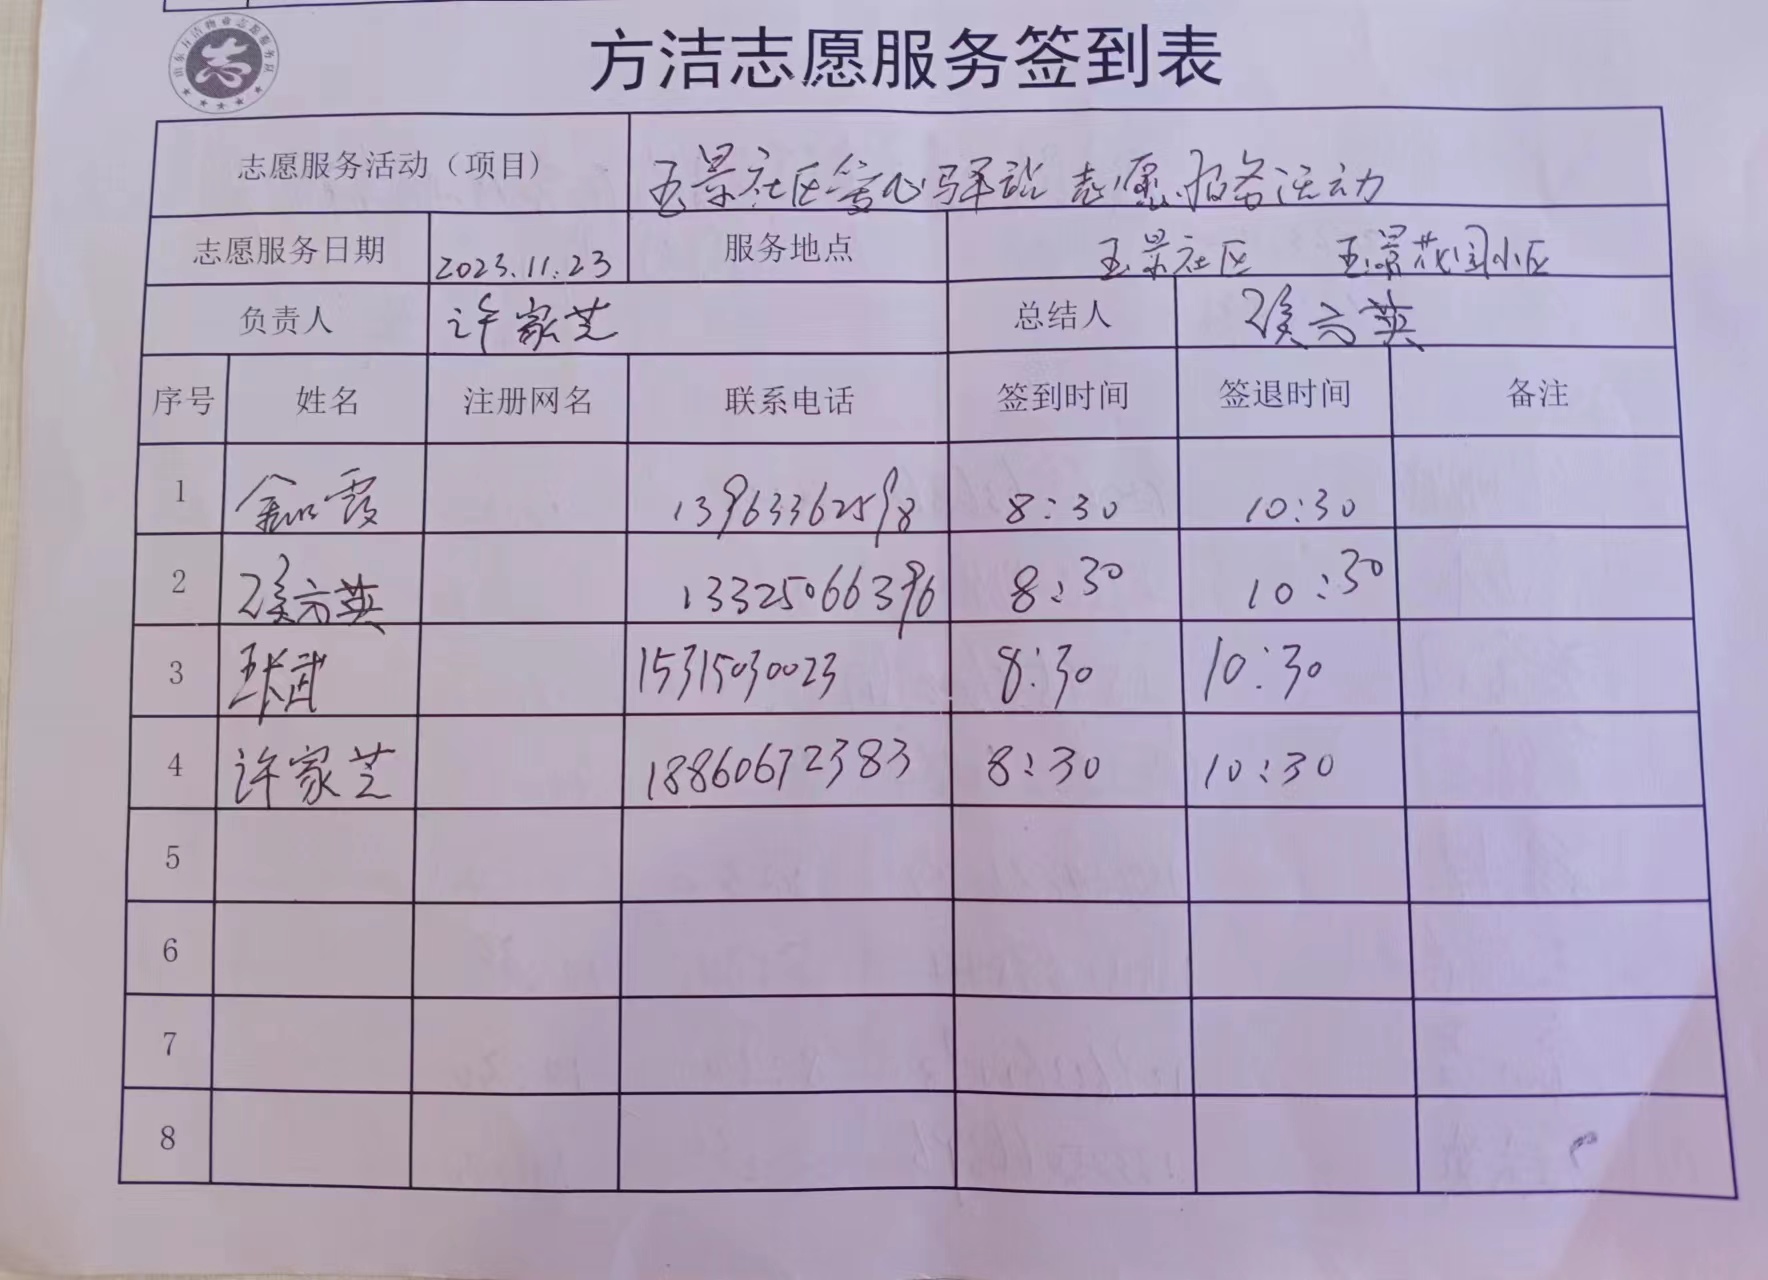 山东方洁物业志愿服务队
志
方洁志愿服务签到表
志愿服务活动（项目） 玉景社区爱心驿站志愿服务活动
志愿服务日期 2023.11.23 服务地点 玉景社区 玉景花园小区
负责人 许家芝 总结人
序号 姓名 注册网名 联系电话 签到时间 签退时间 备注
1 13963362598 8:30 10:30
2 13325066396 8:30 10:30
3 15315030023 8:30 10:30
4 许家芝 18860672383 8:30 10:30
5
6
7
8